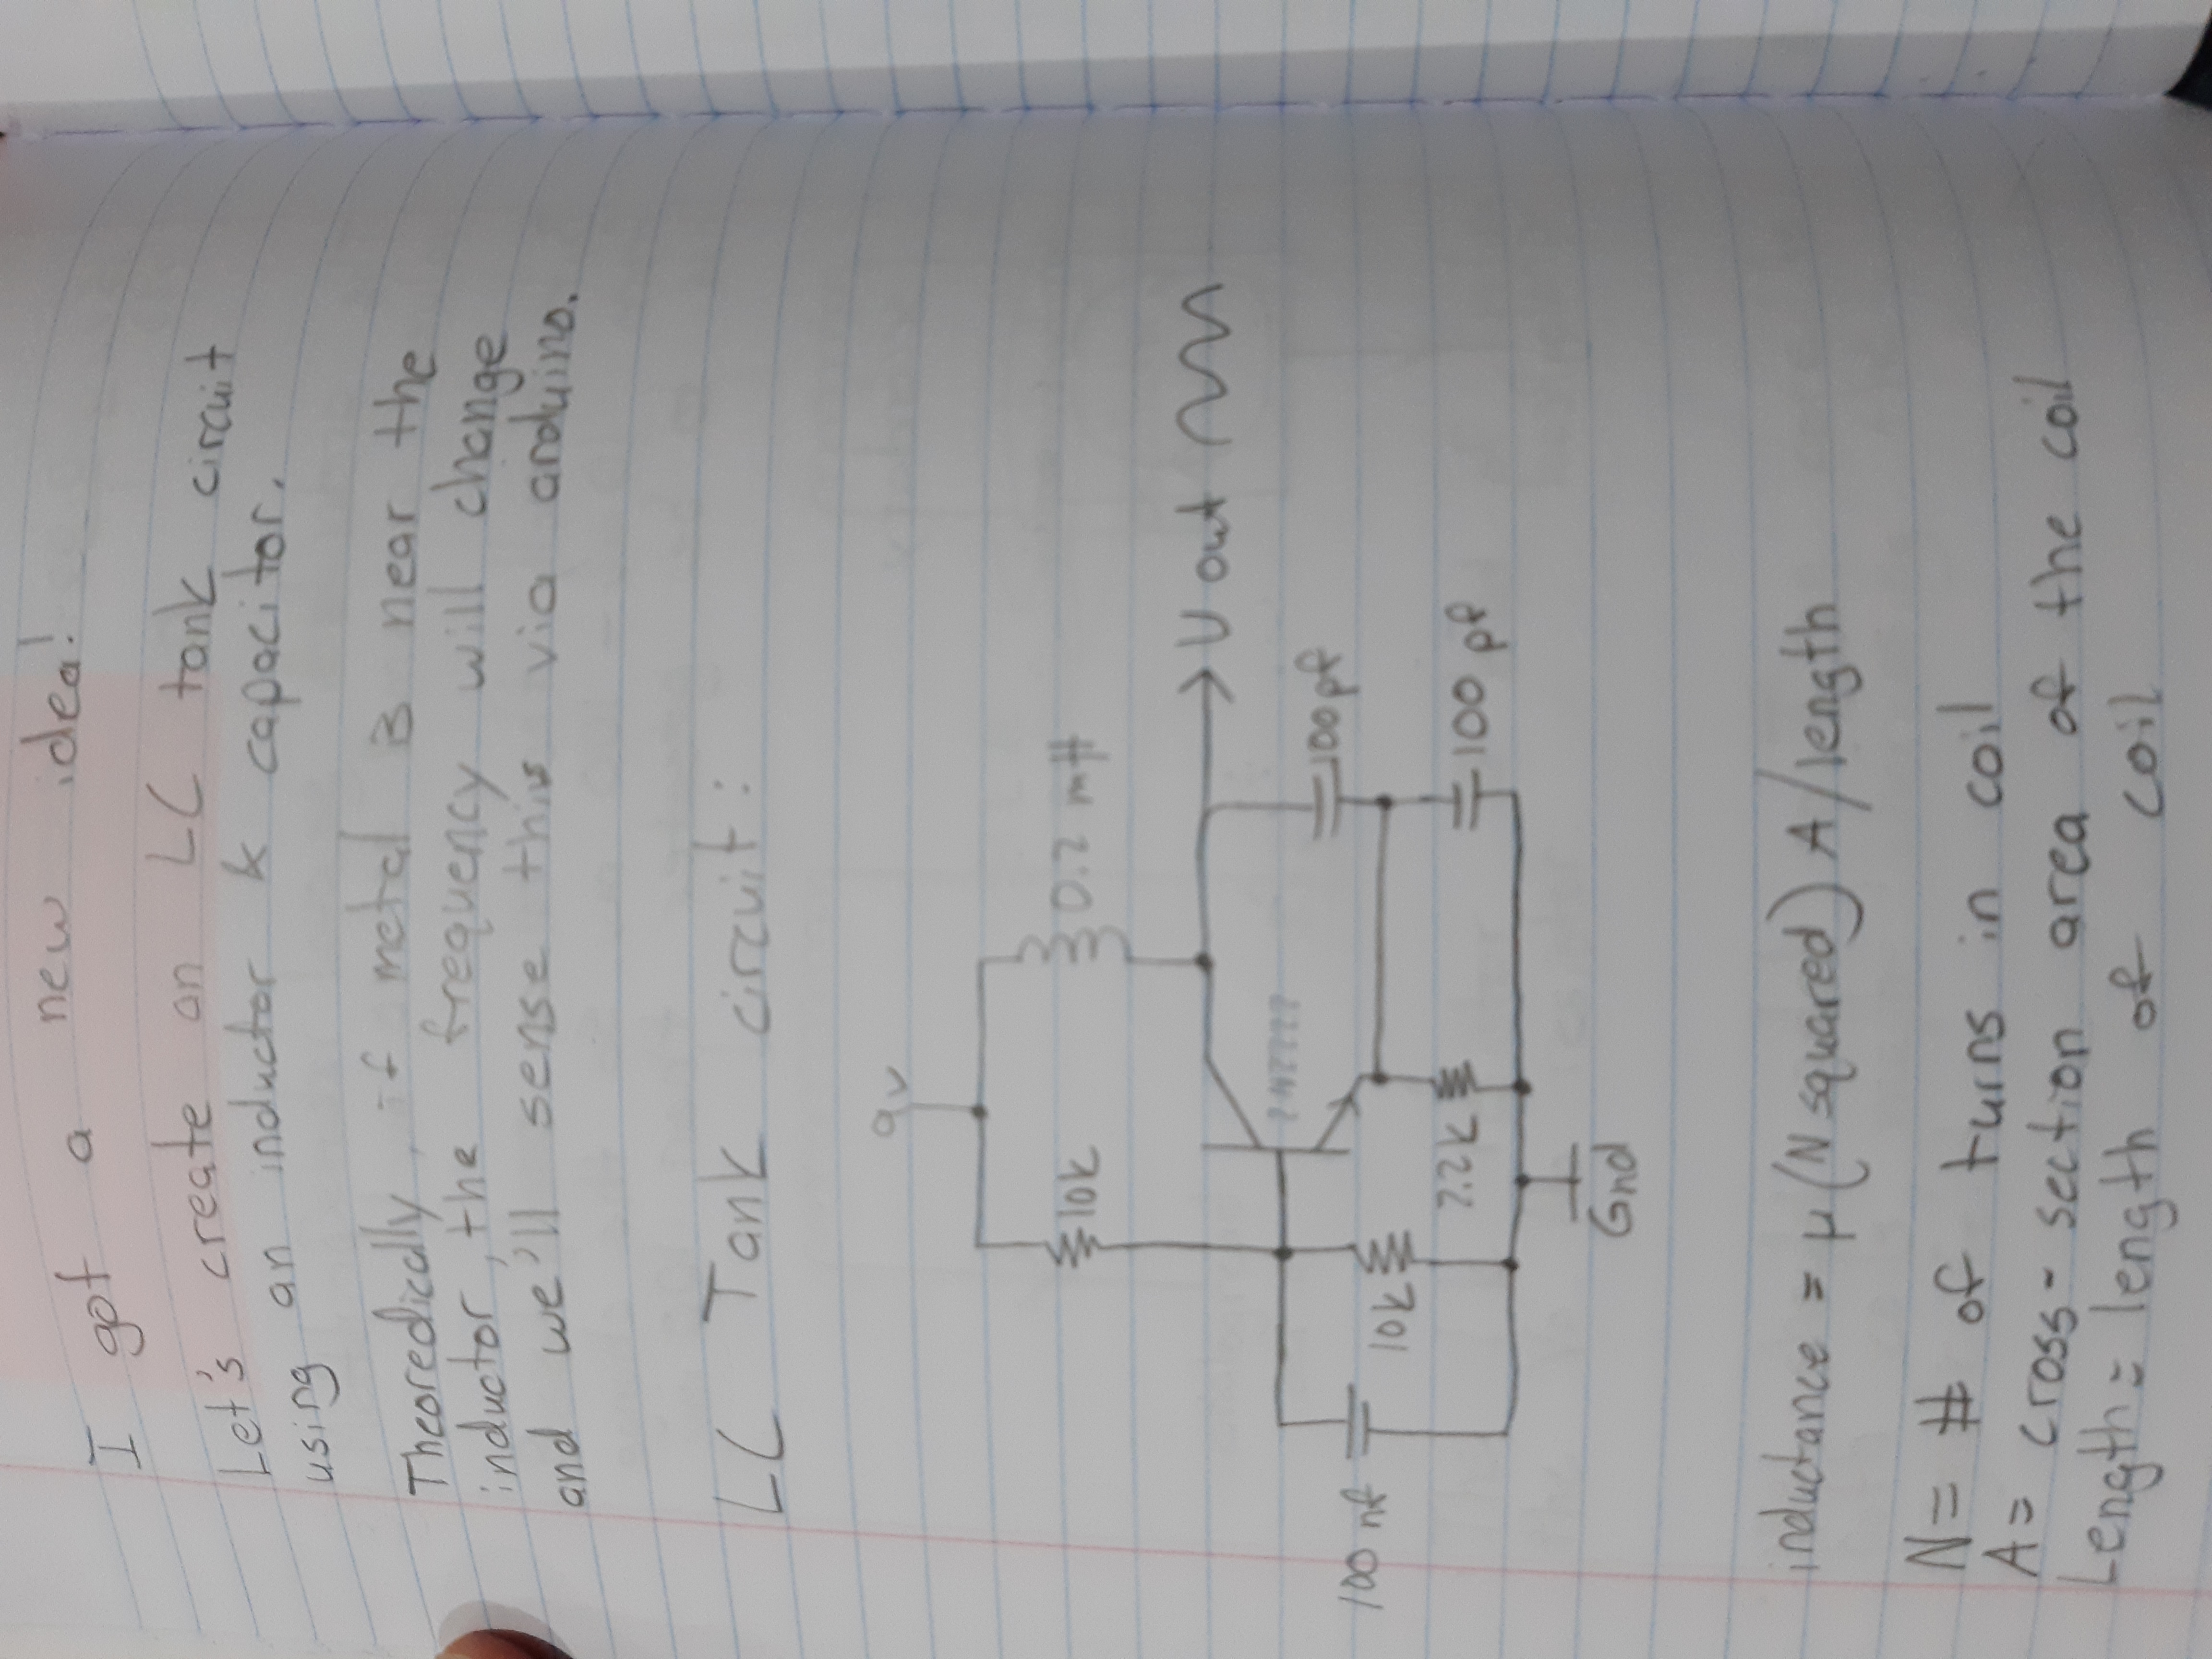 I got a new idea!
Let's create an LC tank circuit
using an inductor & capacitor.
Theoredically, if metal is near the
inductor, the frequency will change
and we'll sense this via arduino.
LC Tank circuit:
9v
10k
0.2 mH
V out
2N2222
100 nf
100pf
10k
2.2k
100 pf
Gnd
inductance = μ(N squared) A/length
N= # of turns in coil
A= cross-section area of the coil
Length= length of coil